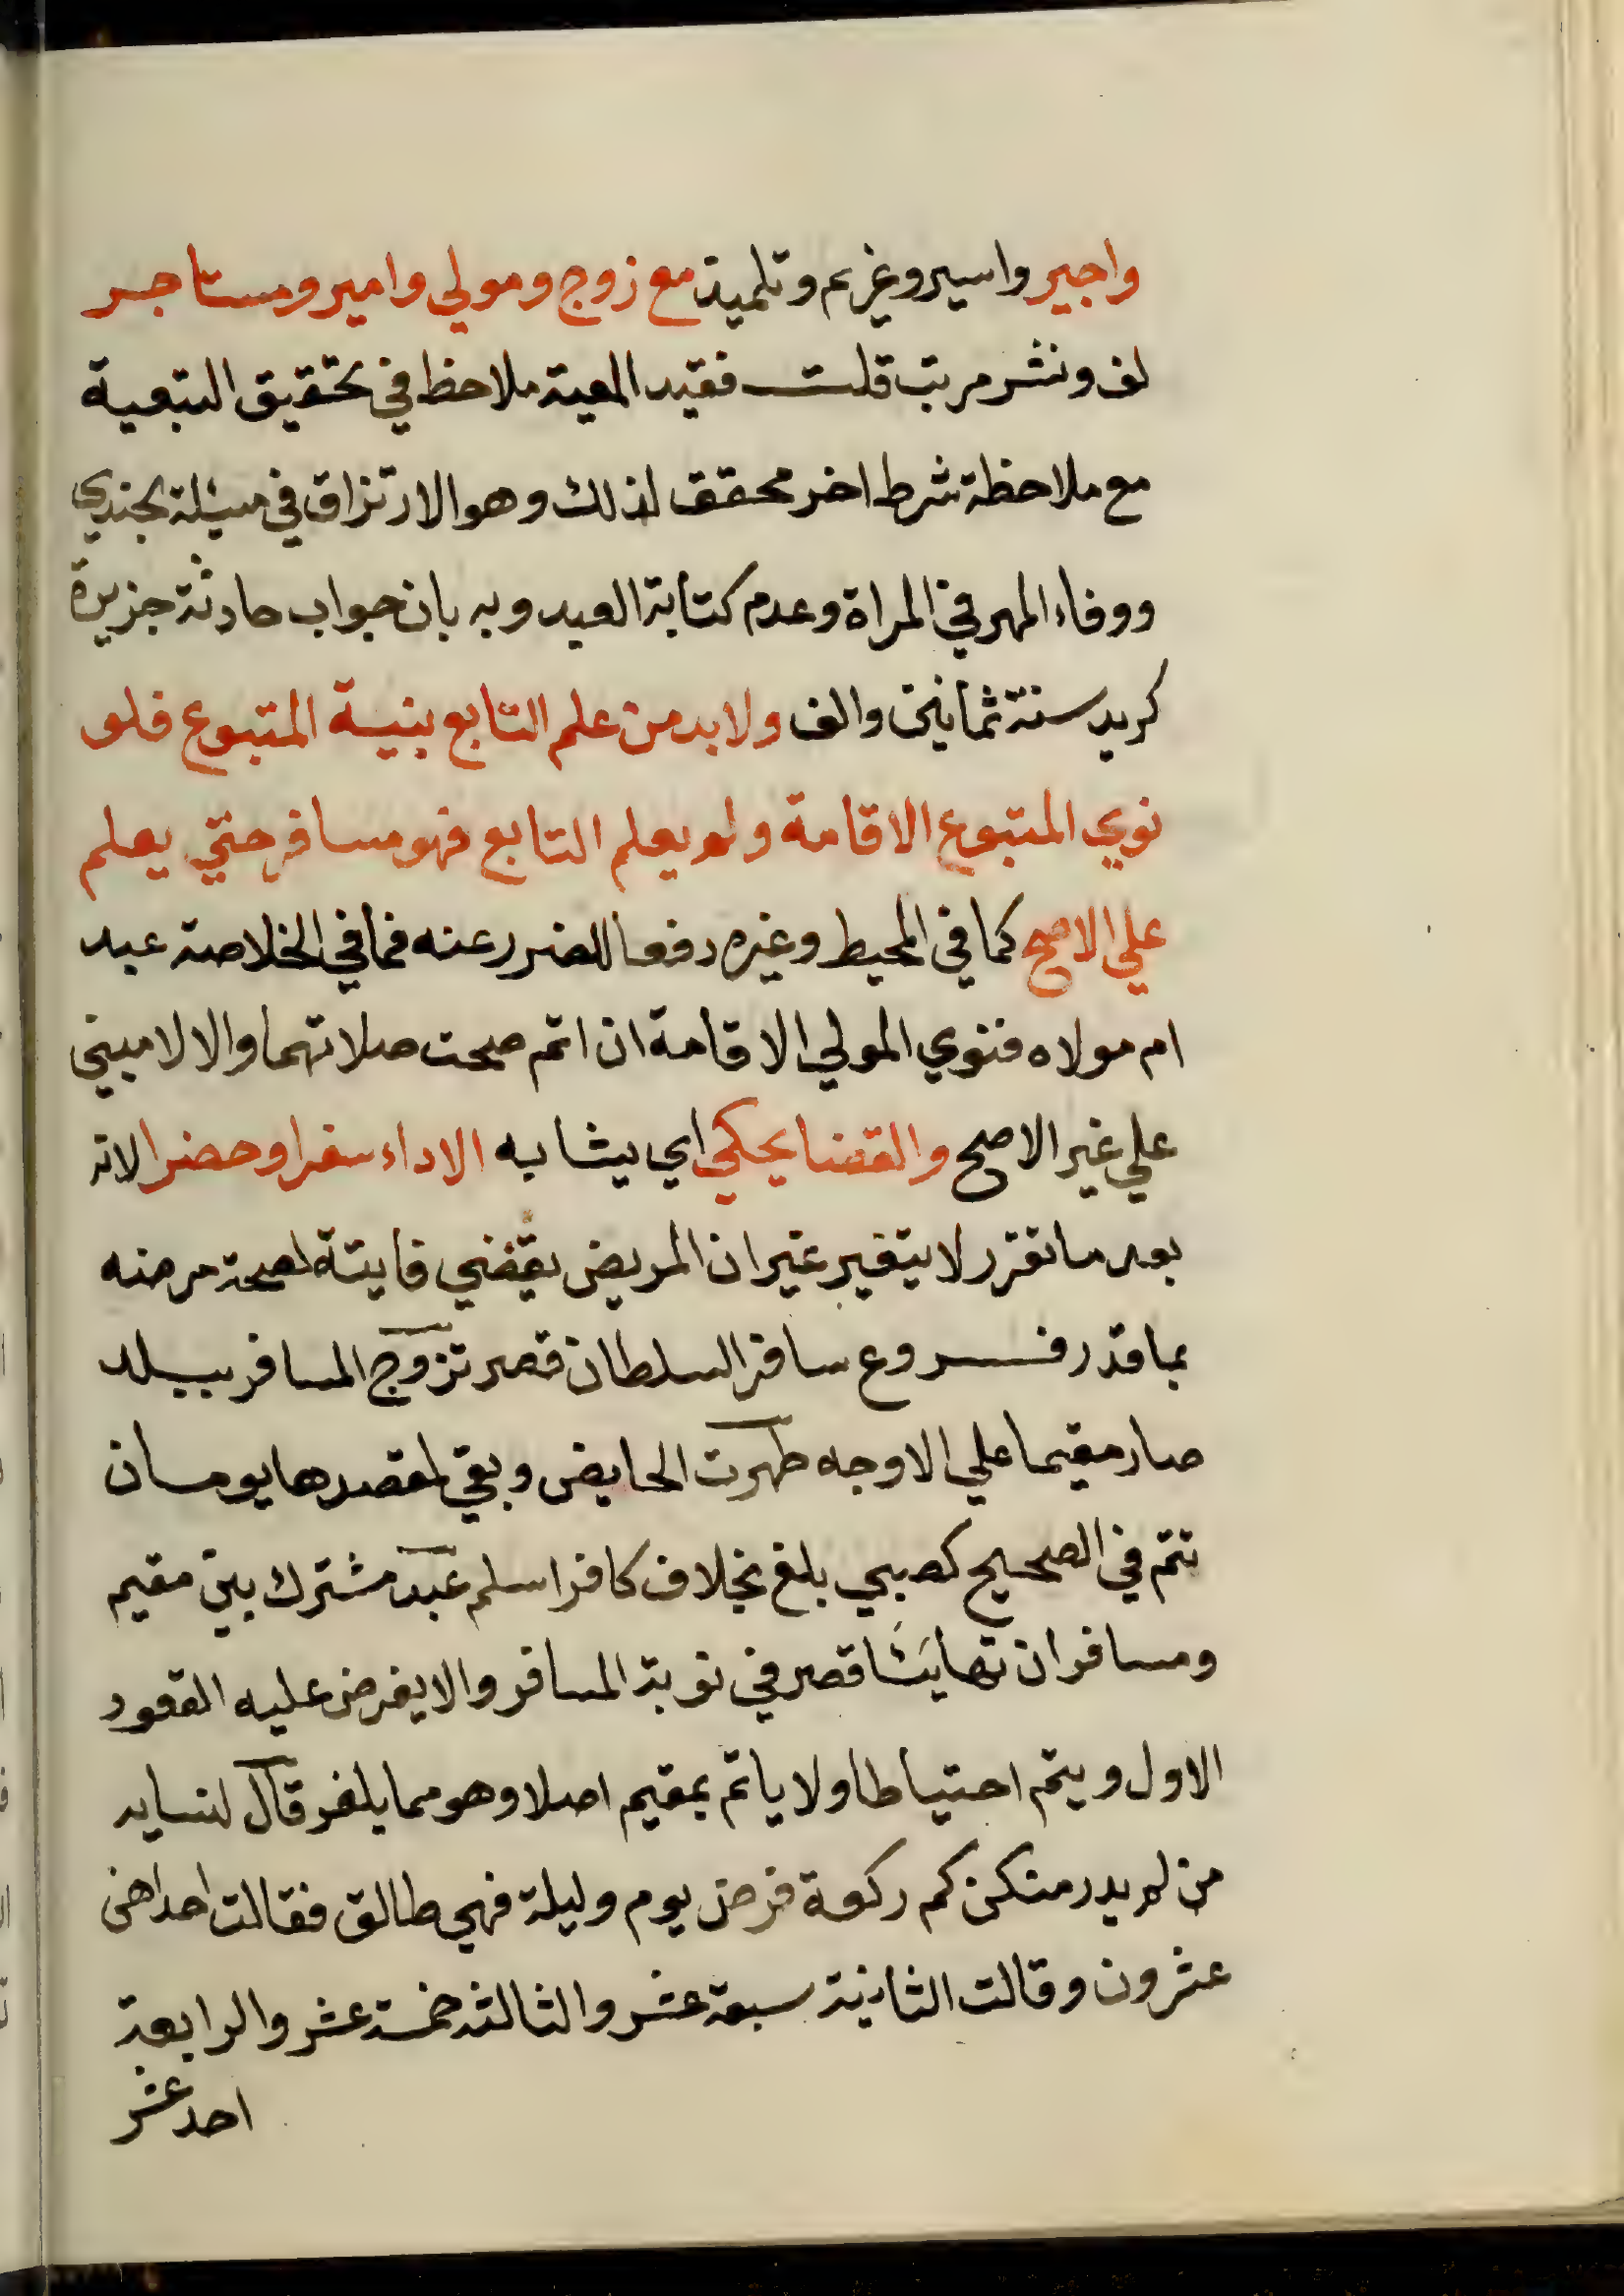 واجير واسير وغريم وتلميذ مع زوج ومولي وامير ومستاجر
لف ونشر مرتب قلت فقيد المعية ملاحظ في تحقيق التبعية
مع ملاحظة شرط اخر محقق لذلك وهو الارتزاق في مسئلة الجندي
ووفاء المهر في المراة وعدم كتابة العبد وبه بان جواب حادثة جزيرة
كريد سنة ثمانين والف ولا بد من علم التابع بنية المتبوع فلو
نوي المتبوع الاقامة ولم يعلم التابع فهو مسافر حتي يعلم
علي الاصح كما في المحيط وغيره دفعا للضرر عنه فما في الخلاصة عبد
ام مولاه فنوي المولي الاقامة ان اتم صحت صلاتهما والا لا مبني
علي غير الاصح والقضا يحكي اي يشابه الاداء سفرا وحضرا لانه
بعد ما تقرر لا يتغير غير ان المريض يقضي فايتة لصحة مرضه
بما قدر فروع سافر السلطان قصر تزوج المسافر ببلد
صار مقيما علي الاوجه طهرت الحايض وبقي لمقصدها يومان
تتم في الصحيح كصبي بلغ بخلاف كافر اسلم عبد مشترك بين مقيم
ومسافر ان تهايئا قصر في نوبة المسافر والا يفرض عليه القعود
الاول ويتم احتياطا ولا ياتم بمقيم اصلا وهو مما يلغز قال لنسايه
من لم يدر منكن كم ركعة فرض يوم وليلة فهي طالق فقالت احداهن
عشرون وقالت الثانية سبعة عشر والثالثة خمسة عشر والرابعة
احد عشر